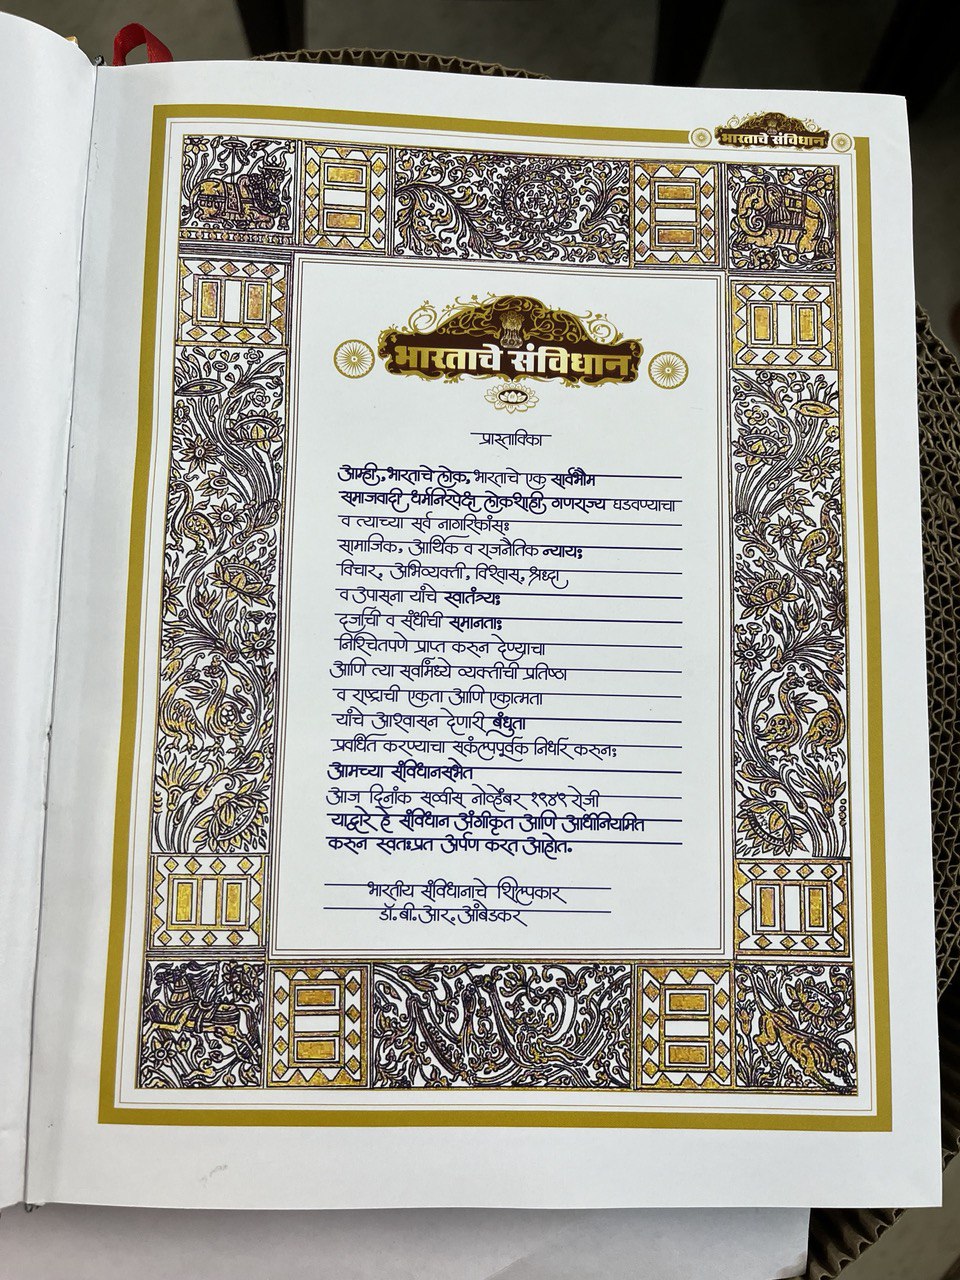 भारताचे संविधान
भारताचे संविधान
प्रास्ताविका
आम्ही, भारताचे लोक, भारताचे एक सार्वभौम
समाजवादी धर्मनिरपेक्ष लोकशाही गणराज्य घडवण्याचा
व त्याच्या सर्व नागरिकांसः
सामाजिक, आर्थिक व राजनैतिक न्याय;
विचार, अभिव्यक्ती, विश्वास, श्रध्दा
व उपासना यांचे स्वातंत्र्य;
दर्जाची व संधीची समानता;
निश्चितपणे प्राप्त करुन देण्याचा
आणि त्या सर्वांमध्ये व्यक्तीची प्रतिष्ठा
व राष्ट्राची एकता आणि एकात्मता
यांचे आश्वासन देणारी बंधुता
प्रवर्धित करण्याचा संकल्पपूर्वक निर्धार करुन;
आमच्या संविधानसभेत
आज दिनांक सव्वीस नोव्हेंबर १९४९ रोजी
याद्वारे हे संविधान अंगीकृत आणि अधिनियमित
करुन स्वतःप्रत अर्पण करत आहोत.
भारतीय संविधानाचे शिल्पकार
डॉ. बी. आर. आंबेडकर